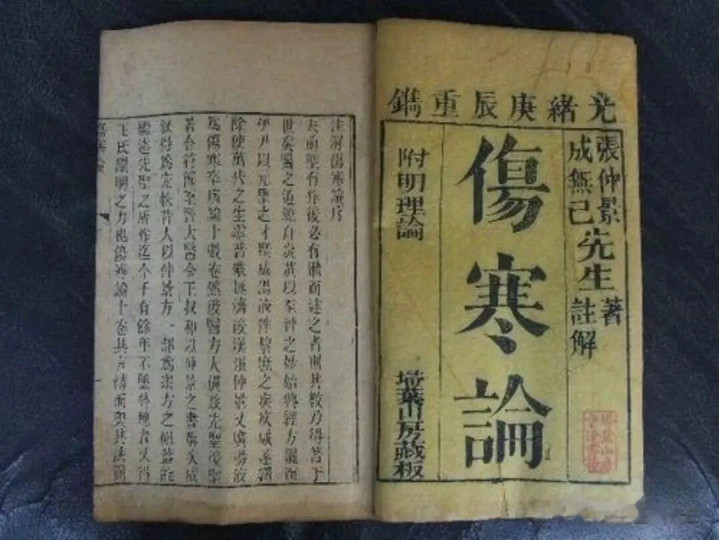 光緒庚辰重鐫
張仲景
成無己先生著
註解
傷寒論
附明理論
埽葉山房藏板
註解傷寒論序
夫前聖有作後必有繼而述之者則其教乃得著于
世矣醫之道源自炎黃以至神之妙始興經方繼而
伊尹以元聖之才撰成湯液俾黎庶之疾疢咸遂蠲
除使萬代之生靈普蒙拯濟後漢張仲景又廣湯液
為傷寒卒病論十數卷然後醫方大備茲先聖後聖
若合符節至晉太醫令王叔和以仲景之書撰次成
敘得為完秩昔人以仲景方一部為眾方之祖蓋能
繼述先聖之所作迄今千有餘年不墜於地者又得
王氏闡明之力也傷寒論十卷其言精而奧其法簡